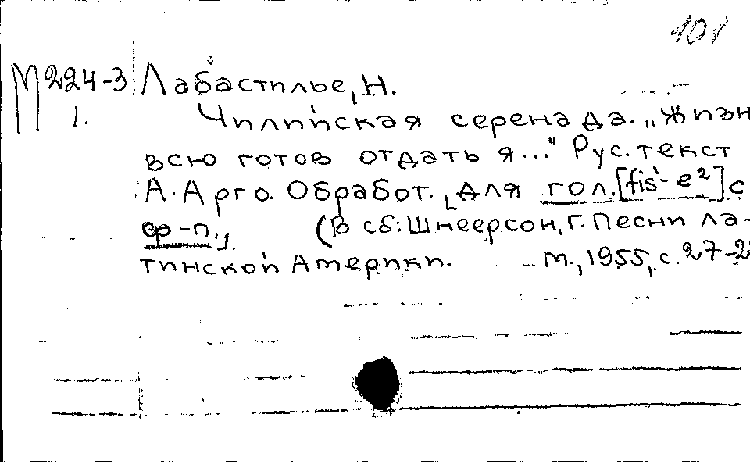 101
М224-3 Лабастилье, Н.
1. Чилийская серенада. „Жизн
всю готов отдать я..." Рус. текст
А. Арго. Обработ. [для гол. [fis¹-e²] с
ф-п.] (В сб: Шнеерсон, Г. Песни ла-
тинской Америки. М., 1955, с. 27-2